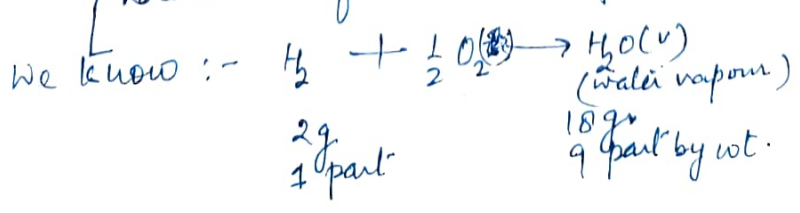 We know :- H2 + 1/2 O2 → H2O(v)
(water vapour)
2g 18g.
1 part 9 part by wt.